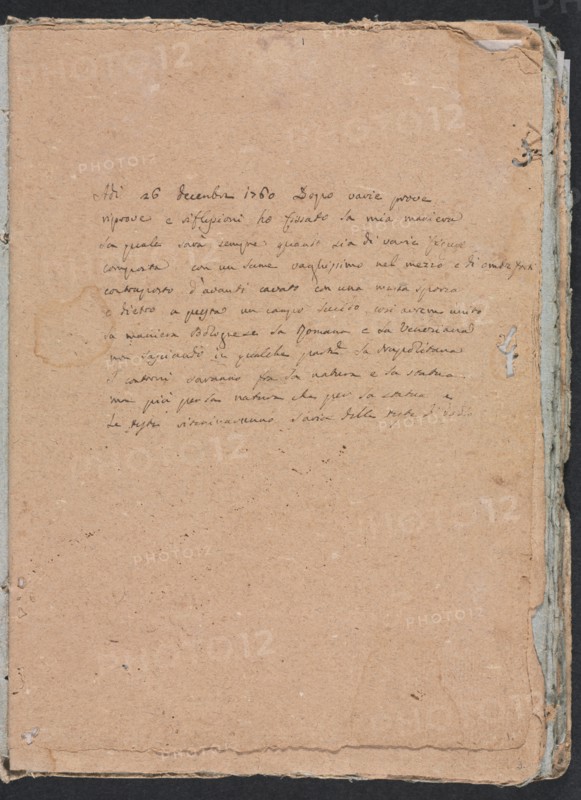 Adi 26 decembre 1760 Dopo varie prove
riprove e riflessioni ho fissato la mia maniera
la quale sarà sempre quant sia di varie figure
composta con un lume vaghissimo nel mezzo e di ombre forti
contraposto d'avanti cavato con una meza sporca
e dietro a questo un campo lucido così avrem unito
la maniera Bolognese la Romana e la Veneziana
non lasciando in qualche parte la Napolitana
I contorni saranno fra la natura e la statua
ma più per la natura che per la statua e
Le teste
PHOTO12